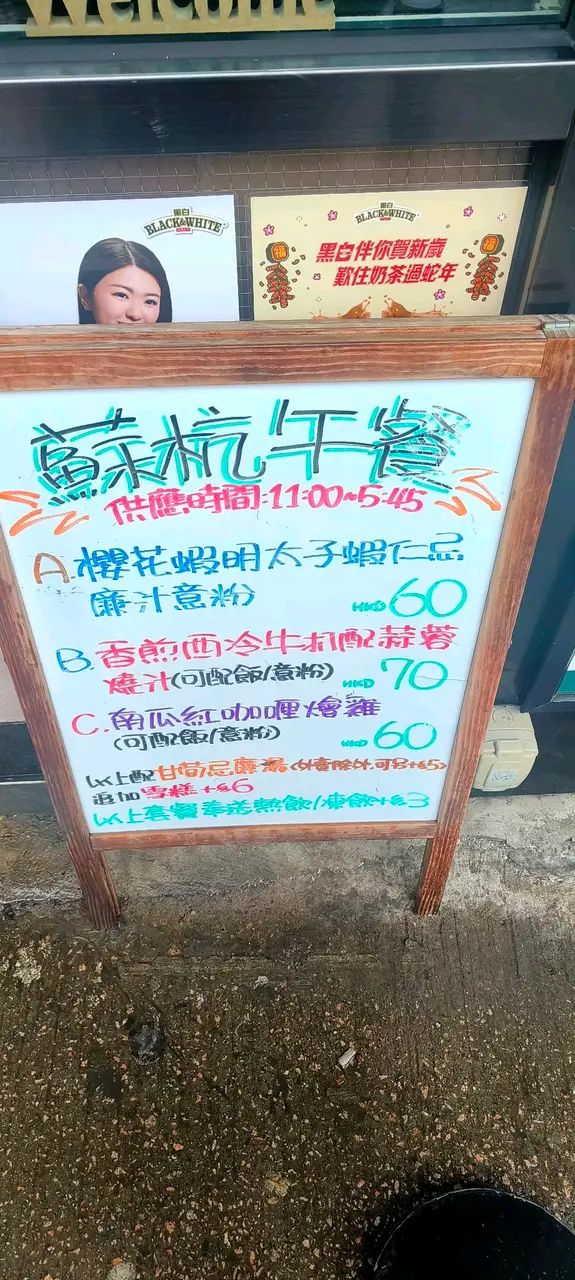 Welcome
黑白
BLACK&WHITE
黑白
BLACK&WHITE
福
福
黑白伴你賀新歲
歎住奶茶過蛇年
蘇杭午餐
供應時間:11:00~5:45
A.櫻花蝦明太子蝦仁忌
廉汁意粉 HKD 60
B.香煎西冷牛扒配蒜蓉
燒汁(可配飯/意粉) HKD 70
C.南瓜紅咖喱燴雞
(可配飯/意粉) HKD 60
以上配甘荀忌廉湯(外賣除外,可另+$5)
追加雪糕+$6
以上套餐奉送熱飲/凍飲+$3